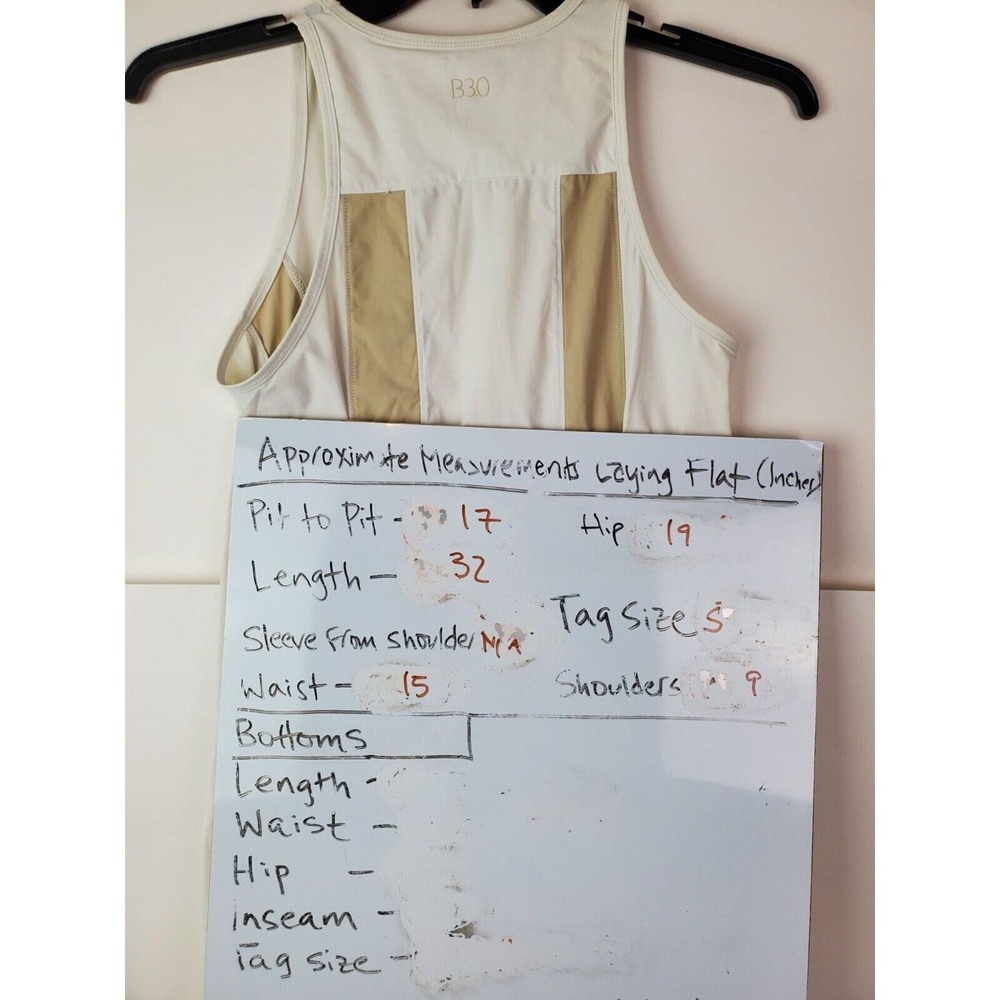 B3.0
Approximate Measurements Laying Flat (Inches)
Pit to Pit - 17 Hip 19
Length - 32
Tag Size S
Sleeve From Shoulder N/A
Waist - 15 Shoulders 9
Bottoms
Length -
Waist -
Hip -
Inseam -
Tag size -